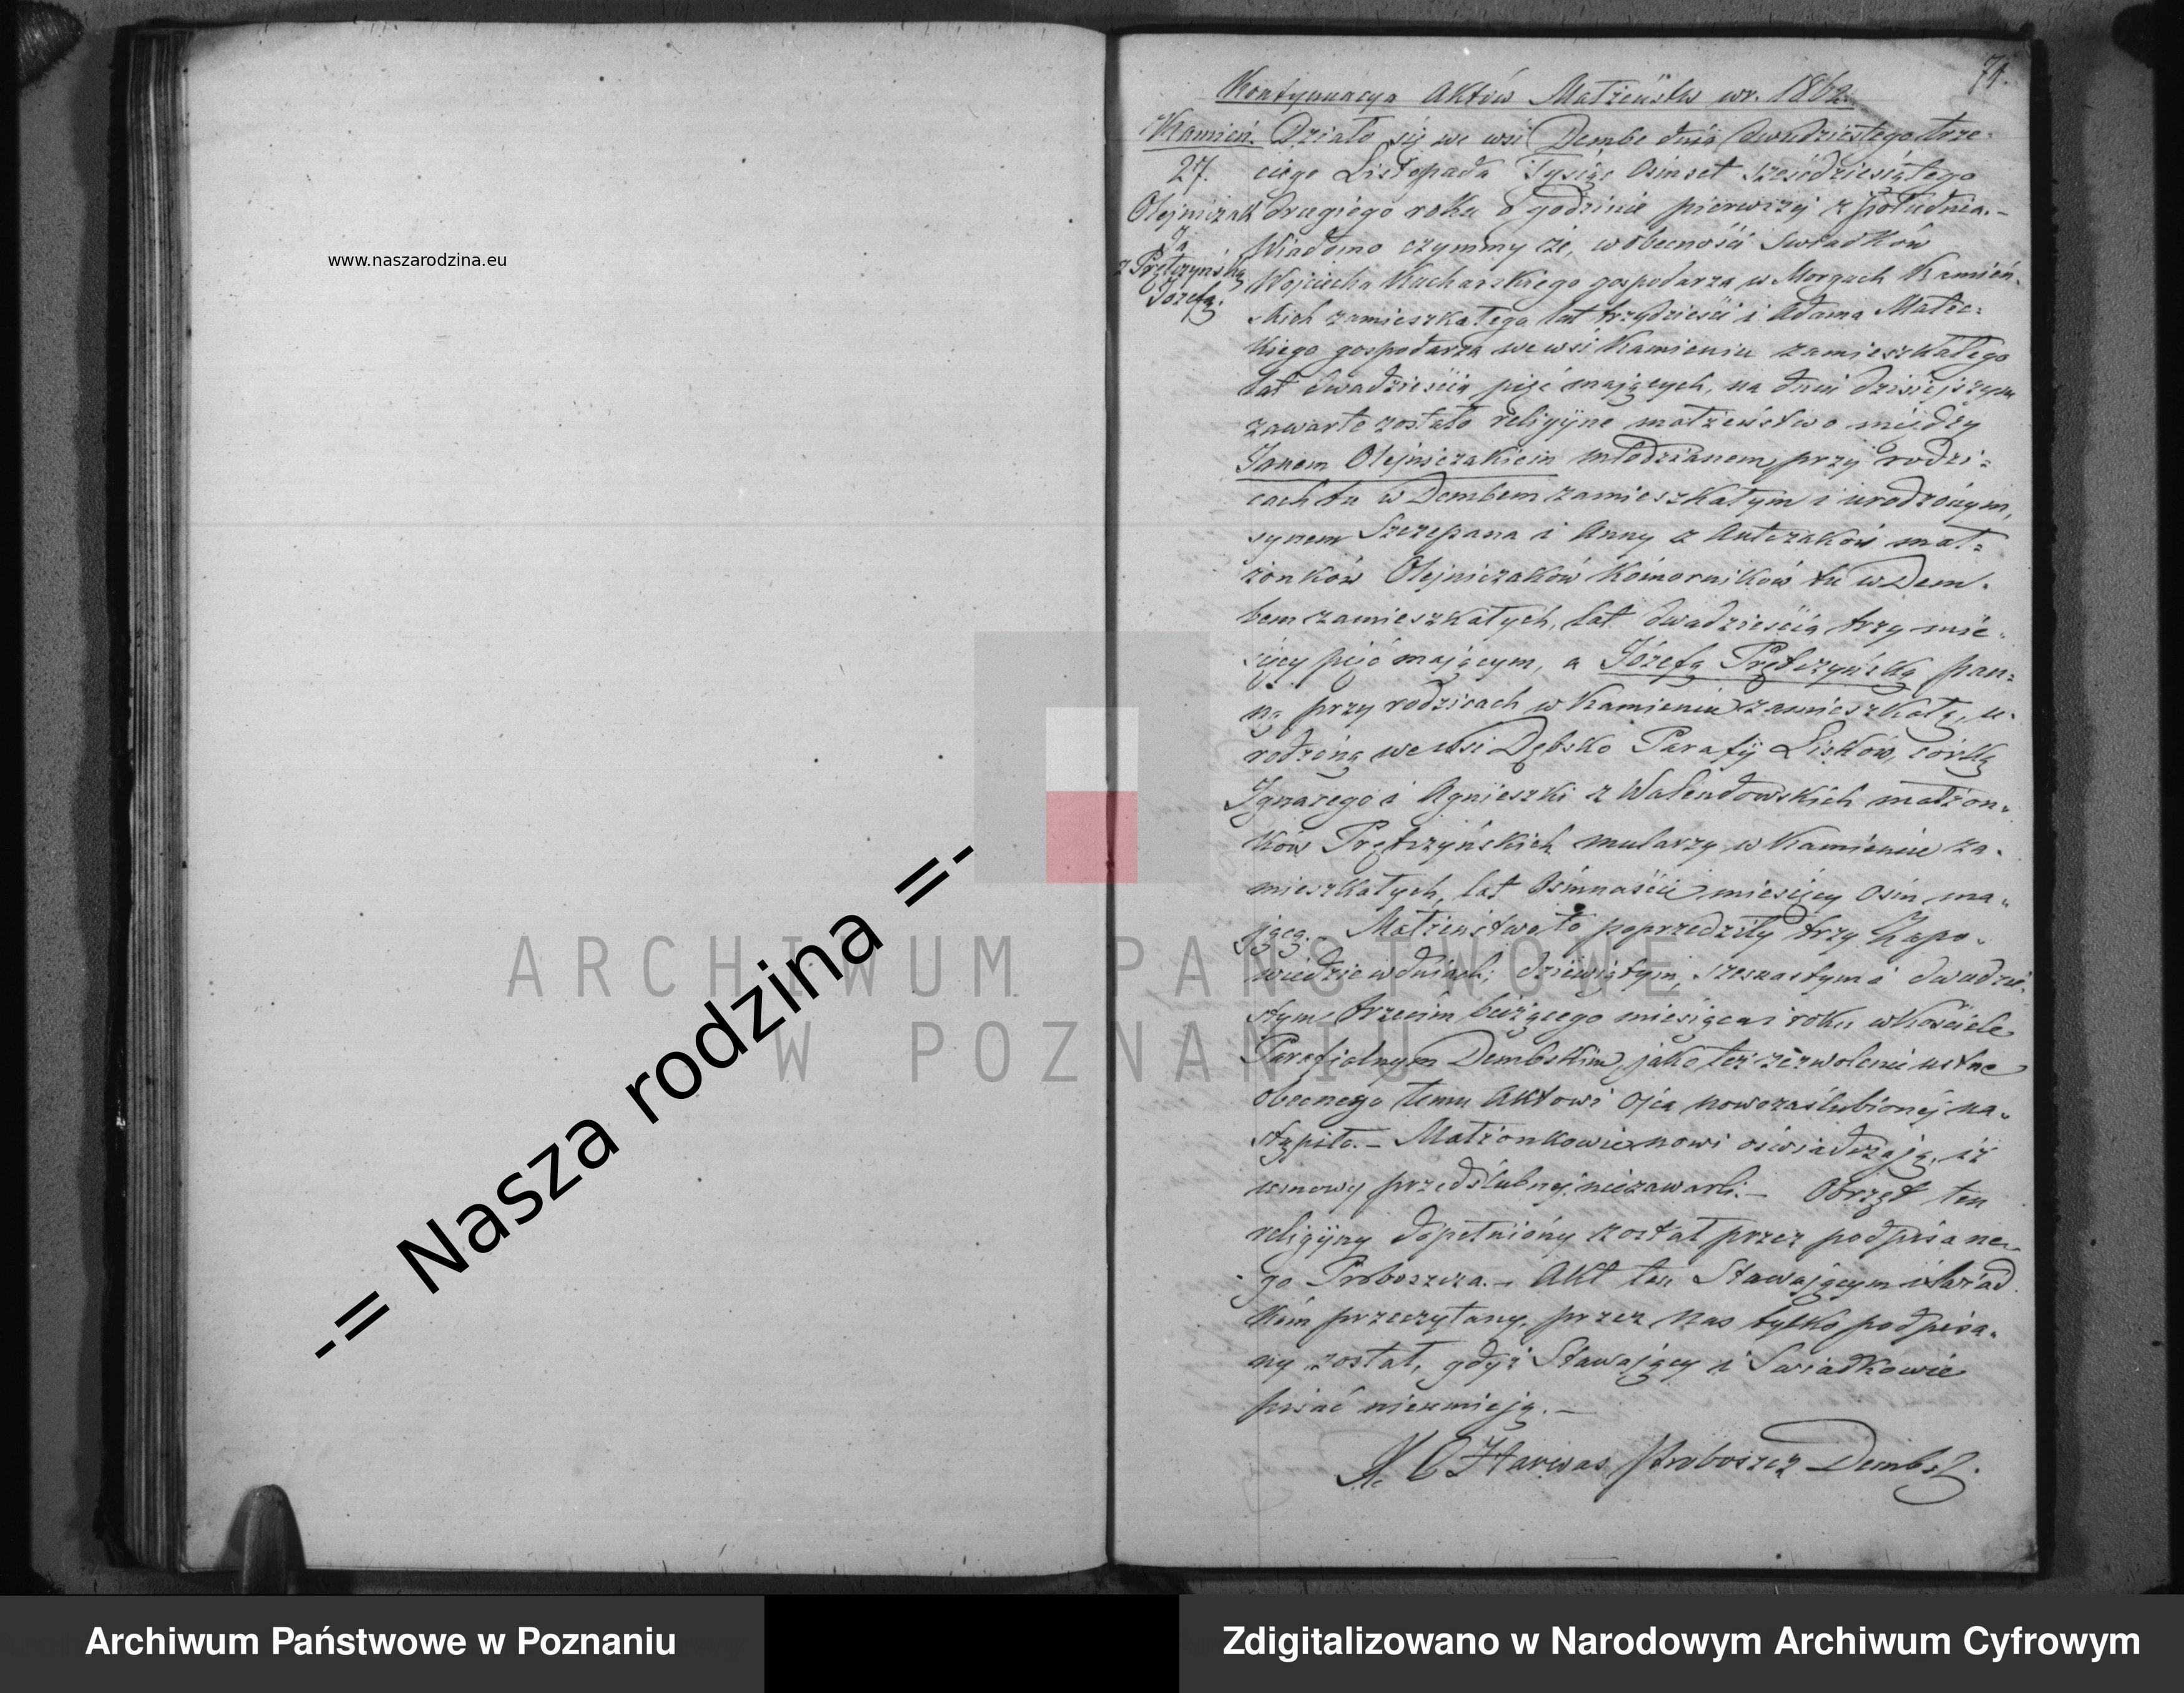 www.naszarodzina.eu
-= Nasza rodzina =-
ARCHIWUM PAŃSTWOWE
W POZNANIU
74.
Kontynuacya Aktów Małżeństw w r. 1862
Kamień.
27.
Olejniczak
Ja
z Prętczyńską
Józefą.
Działo się we wsi Dembe dnia dwudziestego trze=
ciego Listopada Tysiąc Ośmset sześćdziesiątego
drugiego roku o godzinie pierwszéj z południa.–
Wiadomo czynimy że, w obecności Swiadków
Wojciecha Kucharskiego gospodarza w Morgach Kamień-
skich zamieszkałego lat trzydzieści i Adama Małec=
kiego gospodarza we wsi Kamieniu zamieszkałego
lat dwadzieścia pięć mających, na dniu dzisiejszym
zawarte zostało religijne małżeństwo między
Janem Olejniczakiem młodzianem przy rodzi=
cach tu w Dembem zamieszkałym i urodzonym,
synem Szczepana i Anny z Antczaków mał=
żonków Olejniczaków Komorników tu w Dem-
bem zamieszkałych, lat dwadzieścia trzy mie-
sięcy pięć mającym, a Józefą Prętczyńską pan=
ną przy rodzicach w Kamieniu zamieszkałą, u-
rodzoną we wsi Dębsko Parafij Lisków, córką
Ignacego i Agnieszki z Walendowskich małżon-
ków Prętczyńskich mularzy w Kamieniu za-
mieszkałych, lat Ośmnaście miesięcy Ośm ma-
jącą.– Małżeństwo to poprzedziły trzy Zapo-
wiedzie w dniach; dziewiątym, szesnastym i dwudzie-
stym trzecim bieżącego miesiąca i roku w Kościele
Parafialnym Dembskim, jako też zezwolenie ustne
obecnego temu Aktowi Ojca nowozaślubionéj na-
stąpiło.– Małżonkowie nowi oświadczają, iż
umowy przedślubnéj niezawarli.– Obrzęd ten
religijny dopełniony został przez podpisane-
go Proboszcza.– Akt ten Stawającym i Swiad
kom przeczytany, przez Nas tylko podpisa-
ny został, gdyż Stawający i Swiadkowie
pisać nieumieją.–
Proboszcz Dembs.
Archiwum Państwowe w Poznaniu
Zdigitalizowano w Narodowym Archiwum Cyfrowym